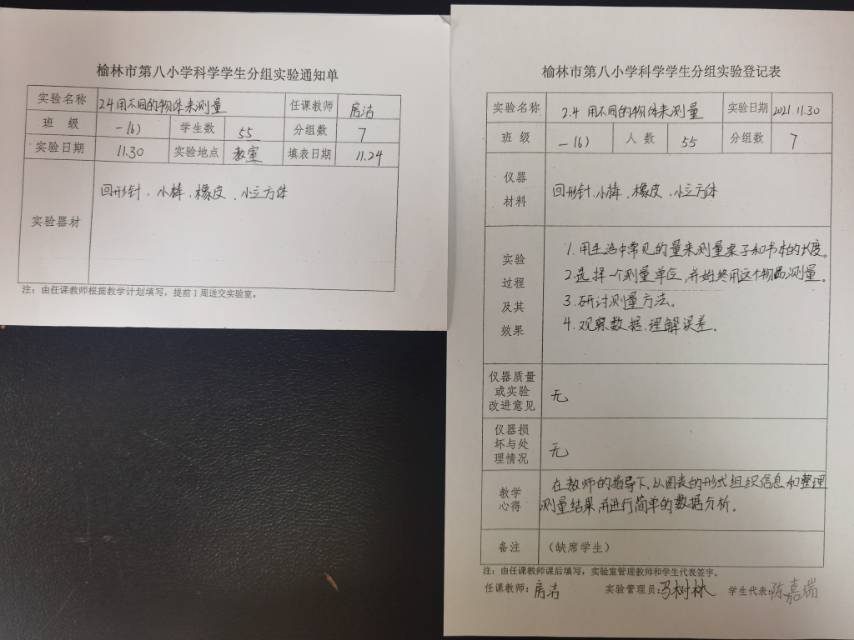 榆林市第八小学科学学生分组实验通知单
实验名称 2.4用不同的物体来测量 任课教师 房洁
班 级 一(6) 学生数 55 分组数 7
实验日期 11.30 实验地点 教室 填表日期 11.24
实验器材 回形针、小棒、橡皮、小立方体
注：由任课教师根据教学计划填写，提前1周送交实验室。
榆林市第八小学科学学生分组实验登记表
实验名称 2.4 用不同的物体来测量 实验日期 2021.11.30
班 级 一(6) 人 数 55 分组数 7
仪器
材料
回形针、小棒、橡皮、小立方体
实验
过程
及其
效果
1.用生活中常见的量来测量桌子和书本的长度。
2.选择一个测量单位,并始终用这个物品测量。
3.研讨测量方法。
4.观察数据,理解误差。
仪器质量
或实验
改进意见
无
仪器损
坏与处
理情况
无
教学
心得
在教师的指导下,以图表的形式组织信息和整理
测量结果,并进行简单的数据分析。
备注 （缺席学生）
注：由任课教师课后填写，实验室管理教师和学生代表签字。
任课教师：房洁 实验管理员：马树林 学生代表：陈嘉瑞